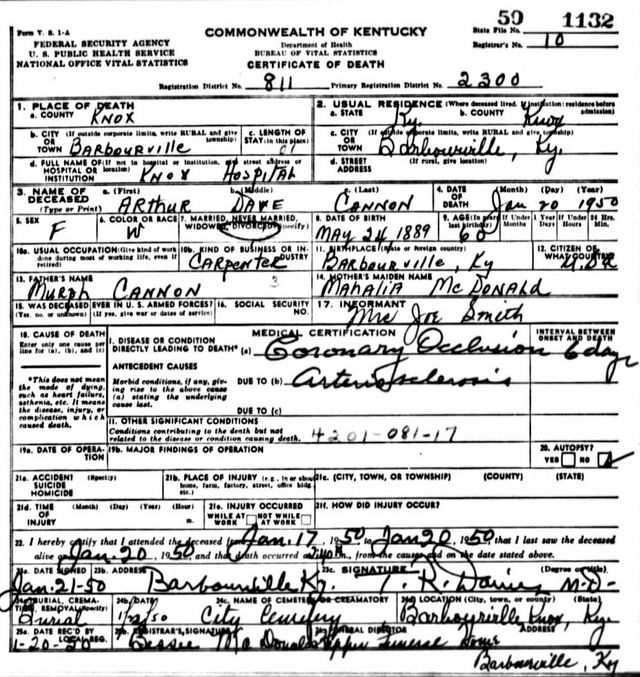 Form V. S. 1-A
FEDERAL SECURITY AGENCY
U. S. PUBLIC HEALTH SERVICE
NATIONAL OFFICE VITAL STATISTICS
COMMONWEALTH OF KENTUCKY
Department of Health
BUREAU OF VITAL STATISTICS
CERTIFICATE OF DEATH
State File No. 50 1132
Registrar's No. 10
Registration District No. 811 Primary Registration District No. 2300
1. PLACE OF DEATH
a. COUNTY KNOX
2. USUAL RESIDENCE (Where deceased lived. If institution: residence before admission)
a. STATE Ky. b. COUNTY Knox
b. CITY (If outside corporate limits, write RURAL and give township)
OR TOWN Barbourville
c. LENGTH OF STAY (in this place)
c. CITY (If outside corporate limits, write RURAL and give township)
OR TOWN Barbourville, Ky.
d. FULL NAME OF (If not in hospital or institution, give street address or location)
HOSPITAL OR INSTITUTION KNOX HOSPITAL
d. STREET ADDRESS (If rural, give location)
3. NAME OF DECEASED (Type or Print)
a. (First) ARTHUR b. (Middle) DAVE c. (Last) CANNON
4. DATE OF DEATH (Month) (Day) (Year) Jan 20 1950
5. SEX F
6. COLOR OR RACE W
7. MARRIED, NEVER MARRIED, WIDOWED, DIVORCED (Specify)
8. DATE OF BIRTH MAY 24 1889
9. AGE (In years last birthday) 60
If Under 1 Year Months Days
If Under 24 Hrs. Hours Min.
10a. USUAL OCCUPATION (Give kind of work done during most of working life, even if retired)
10b. KIND OF BUSINESS OR INDUSTRY
CARPENTER
11. BIRTHPLACE (State or foreign country)
BARBOURVILLE, Ky
12. CITIZEN OF WHAT COUNTRY?
13. FATHER'S NAME
Murph CANNON
14. MOTHER'S MAIDEN NAME
MAHALIA McDONALD
15. WAS DECEASED EVER IN U. S. ARMED FORCES?
(Yes, no, or unknown) (If yes, give war or dates of service)
16. SOCIAL SECURITY NO.
17. INFORMANT
Mrs Joe Smith
18. CAUSE OF DEATH
Enter only one cause per line for (a), (b), and (c)
*This does not mean the mode of dying, such as heart failure, asthenia, etc. It means the disease, injury, or complication which caused death.
MEDICAL CERTIFICATION
INTERVAL BETWEEN ONSET AND DEATH
I. DISEASE OR CONDITION DIRECTLY LEADING TO DEATH* (a) Coronary Occlusion 6 days
ANTECEDENT CAUSES
Morbid conditions, if any, giving rise to the above cause (a) stating the underlying cause last.
DUE TO (b) Arteriosclerosis
DUE TO (c)
II. OTHER SIGNIFICANT CONDITIONS
Conditions contributing to the death but not related to the disease or condition causing death.
4201-081-17
19a. DATE OF OPERATION
19b. MAJOR FINDINGS OF OPERATION
20. AUTOPSY?
YES NO
21a. ACCIDENT SUICIDE HOMICIDE
21b. PLACE OF INJURY (e.g., in or about home, farm, factory, street, office bldg. etc.)
21c. (CITY, TOWN, OR TOWNSHIP) (COUNTY) (STATE)
21d. TIME OF INJURY (Month) (Day) (Year) (Hour) m.
21e. INJURY OCCURRED
WHILE AT WORK NOT WHILE AT WORK
21f. HOW DID INJURY OCCUR?
22. I hereby certify that I attended the deceased from Jan. 17, 1950 to Jan 20, 1950 that I last saw the deceased
alive on Jan. 20, 1950, and that death occurred at m., from the causes and on the date stated above.
23a. DATE SIGNED Jan. 21-50
23b. ADDRESS Barbourville Ky.
23c. SIGNATURE (Degree or title) M.D.
24a. BURIAL, CREMATION, REMOVAL (Specify)
Burial
24b. DATE
1/22/50
24c. NAME OF CEMETERY OR CREMATORY
City Cemetery
24d. LOCATION (City, town, or county) (State)
Barbourville Knox, Ky.
25a. DATE REC'D BY LOCAL REG.
1-20-50
25b. REGISTRAR'S SIGNATURE
Bessie McDonald
FUNERAL DIRECTOR ADDRESS
Funeral Home
Barbourville, Ky